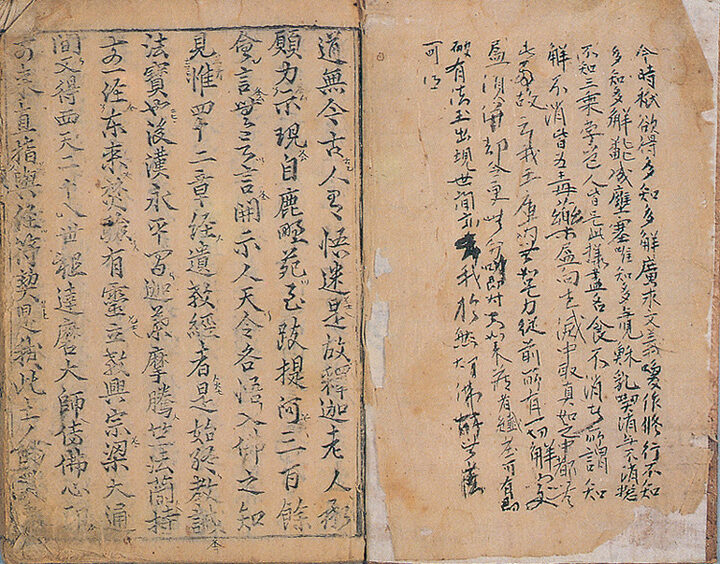 今時欲得多知多解廣求文義喚作修行不知
多知多解翻成壅塞唯知多與兒酥乳喫消与不消揔
不知三乘學道人皆是此樣盡名食不消者所謂知
解不消皆為毒藥盡向生滅中取真如之中都無
此事故云我王庫內無如是刀從前所有一切解處
盡須却更無如來藏更有纖塵可有即
破有法王出現世間亦我於然灯佛所
可得
道無今古人有悟迷是故釋迦老人承
願力示現自鹿野苑至跋提河三百餘
會言無言之言開示人天令各悟入佛之知
見惟四十二章經遺教經者是始終教誡
法寶也後漢永平間迦葉摩騰竺法蘭持
前一經東來焚燒有靈立教興宗梁大通
間又得西天二十八世祖達磨大師傳佛心印
而來直指與經符契是我此土